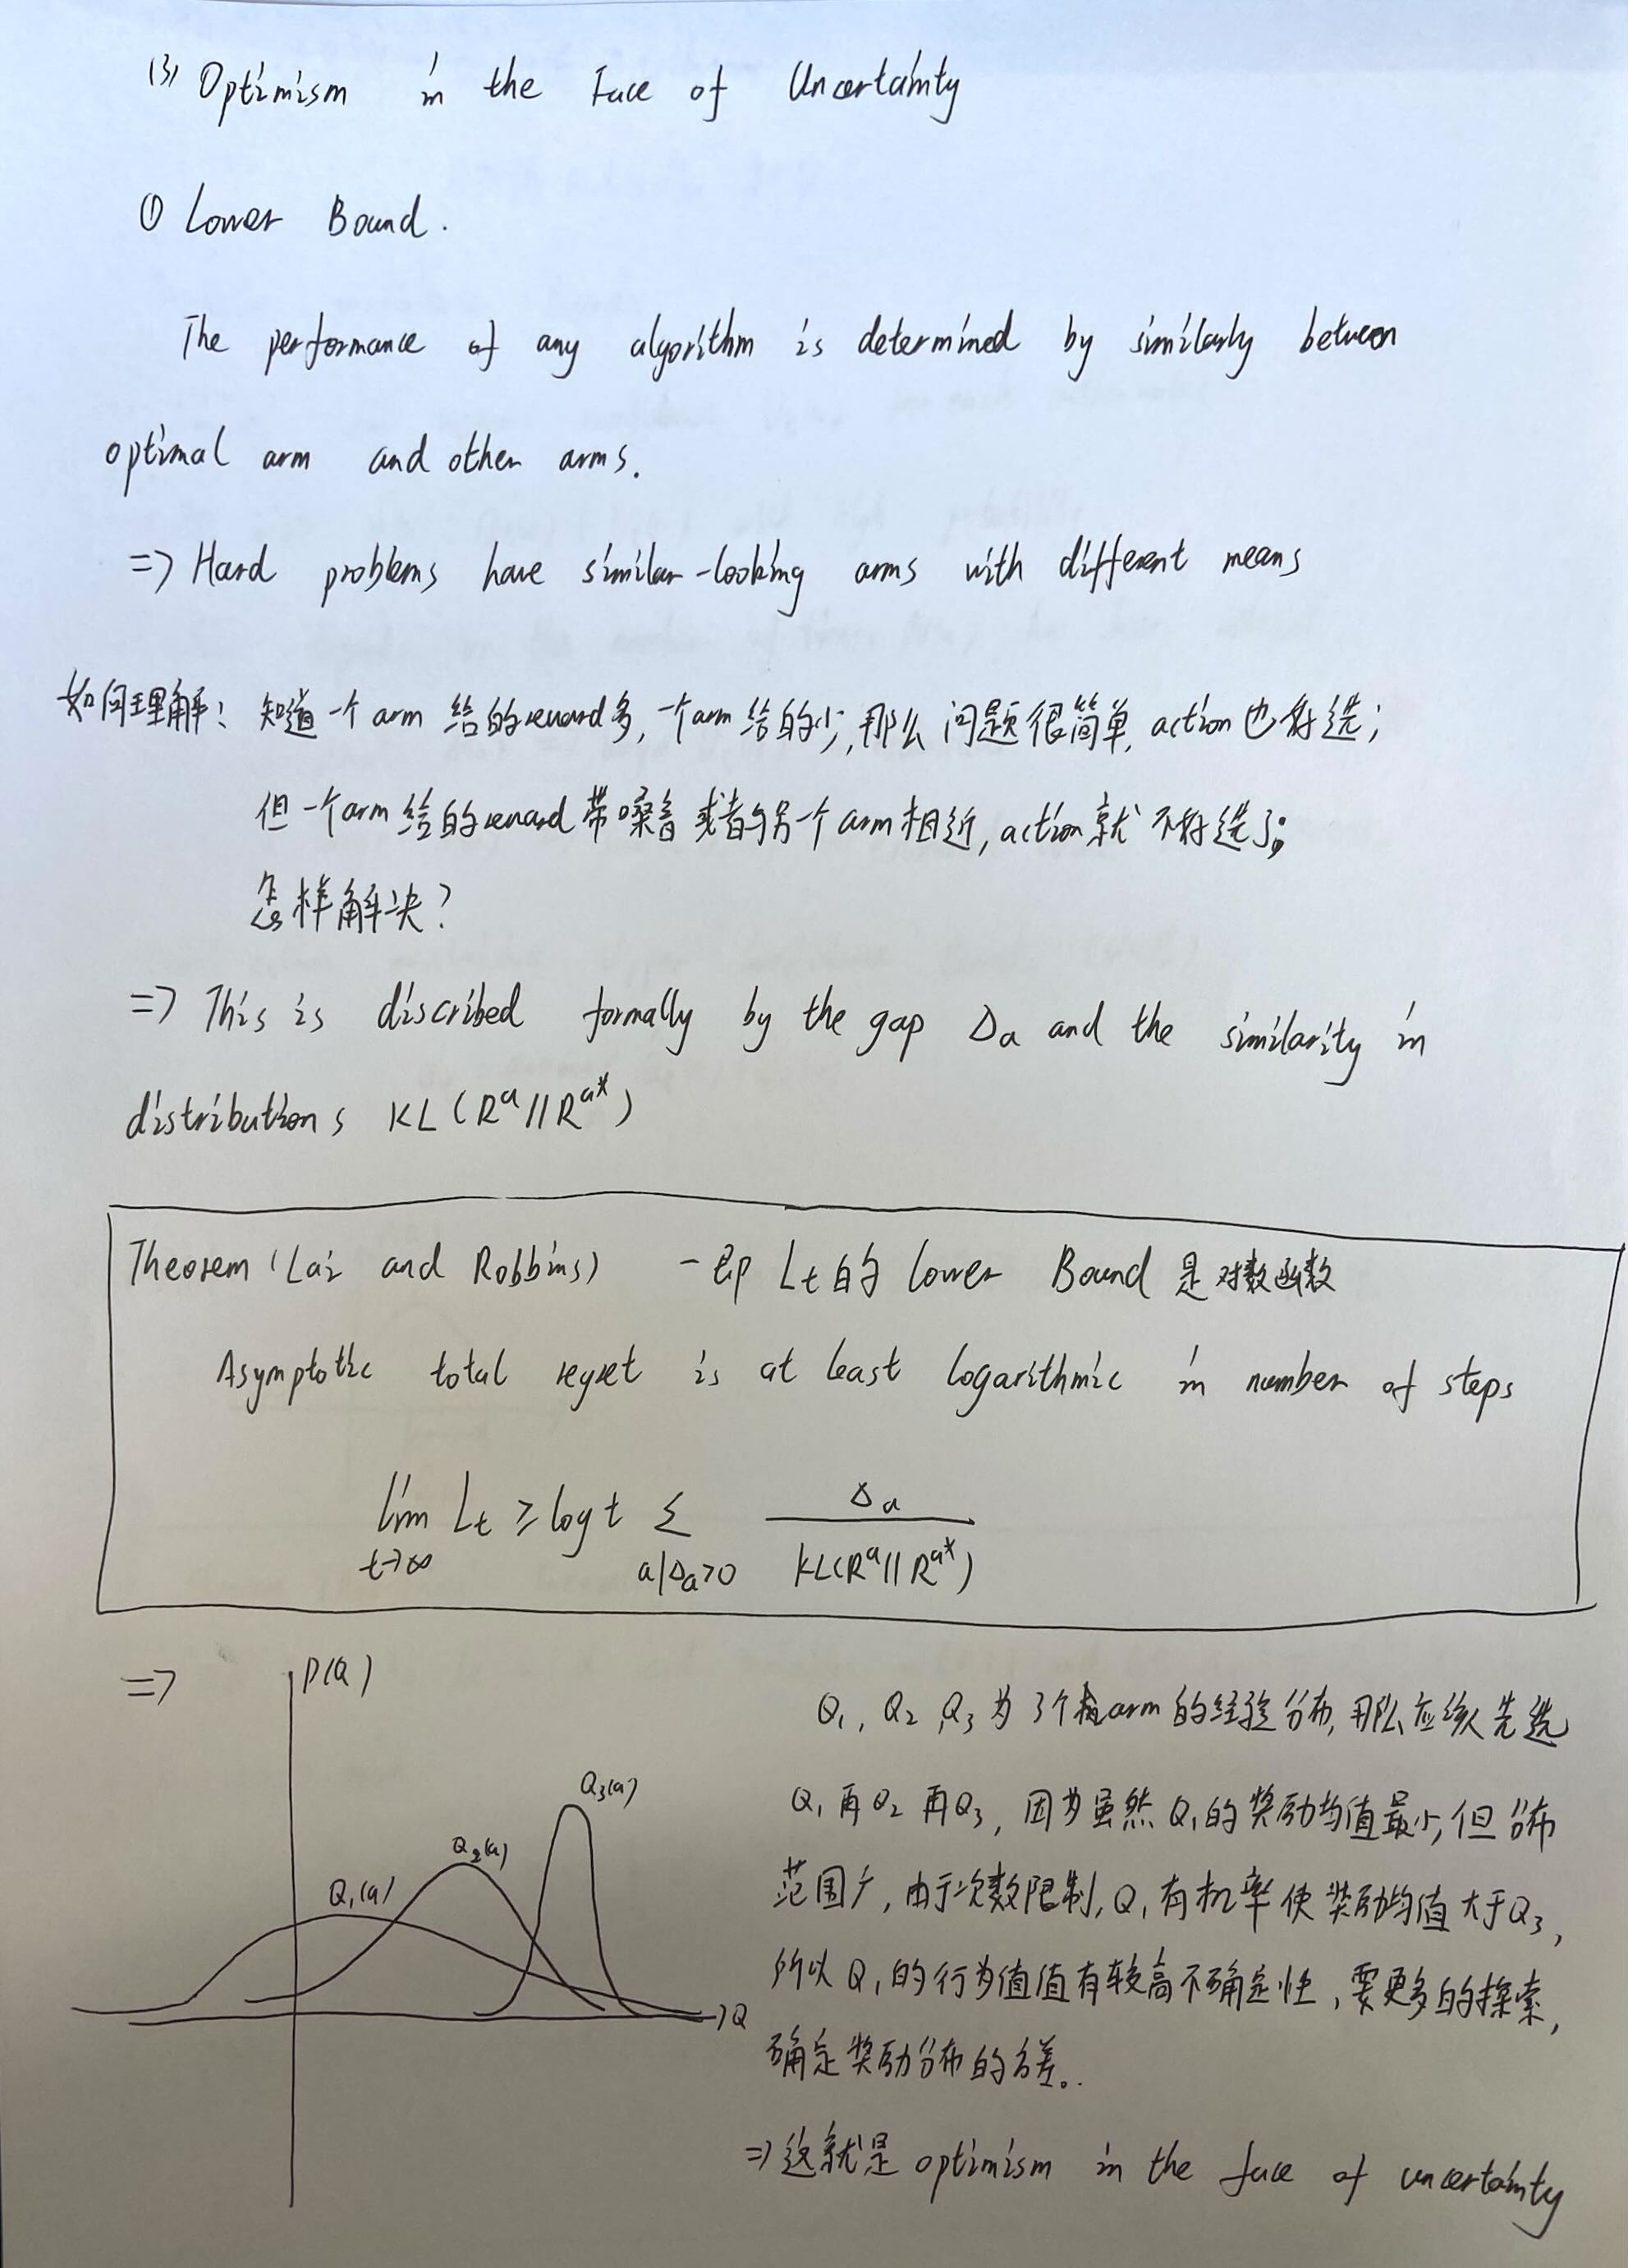 (3) Optimism in the Face of Uncertainty
① Lower Bound.
The performance of any algorithm is determined by similarly between
optimal arm and other arms.
=> Hard problems have similar-looking arms with different means
如何理解: 知道一个arm给的reward多,一个arm给的少,那么问题很简单,action也好选;
但一个arm给的reward带嗓音或者与另一个arm相近,action就不好选了;
怎样解决?
=> This is described formally by the gap Δa and the similarity in
distributions KL(R^a||R^a*)
Theorem (Lai and Robbins) -即 Lt的 lower Bound 是对数函数
Asymptotic total regret is at least logarithmic in number of steps
lim t→∞ Lt ≥ log t Σ a|Δa>0 Δa / KL(R^a||R^a*)
=> P(Q)
Q₁, Q₂, Q₃为3个arm的经验分布,那么应该先选
Q₁再Q₂再Q₃, 因为虽然Q₁的奖励均值最小,但分布
范围广,由于次数限制,Q₁有机率使奖励均值大于Q₃,
所以Q₁的行为值值有较高不确定性,要更多的探索,
确定奖励分布的方差。
=>这就是 optimism in the face of uncertainty
Q₃(a)
Q₂(a)
Q₁(a)
Q